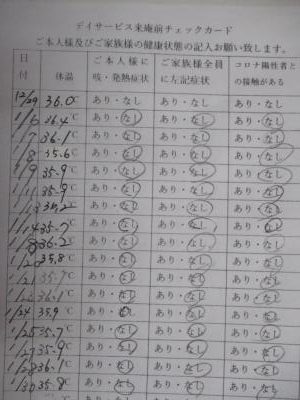 デイサービス来庵前チェックカード
ご本人様及びご家族様の健康状態の記入お願い致します。
日付 体温 ご本人様に咳・発熱症状 ご家族様全員に左記症状 コロナ陽性者との接触がある
12/29 36.0℃ あり・なし あり・なし あり・なし
1/6 36.4℃ あり・なし あり・なし あり・なし
1/7 36.1℃ あり・なし あり・なし あり・なし
1/8 35.6℃ あり・なし あり・なし あり・なし
1/9 35.9℃ あり・なし あり・なし あり・なし
1/11 35.9℃ あり・なし あり・なし あり・なし
1/13 ℃ あり・なし あり・なし あり・なし
1/14 35.7℃ あり・なし あり・なし あり・なし
36.2℃ あり・なし あり・なし あり・なし
1/20 35.8℃ あり・なし あり・なし あり・なし
1/21 35.7℃ あり・なし あり・なし あり・なし
36.1℃ あり・なし あり・なし あり・なし
1/24 35.9℃ あり・なし あり・なし あり・なし
1/25 35.7℃ あり・なし あり・なし あり・なし
1/27 35.9℃ あり・なし あり・なし あり・なし
1/28 36.1℃ あり・なし あり・なし あり・なし
1/30 35.8℃ あり・なし あり・なし あり・なし